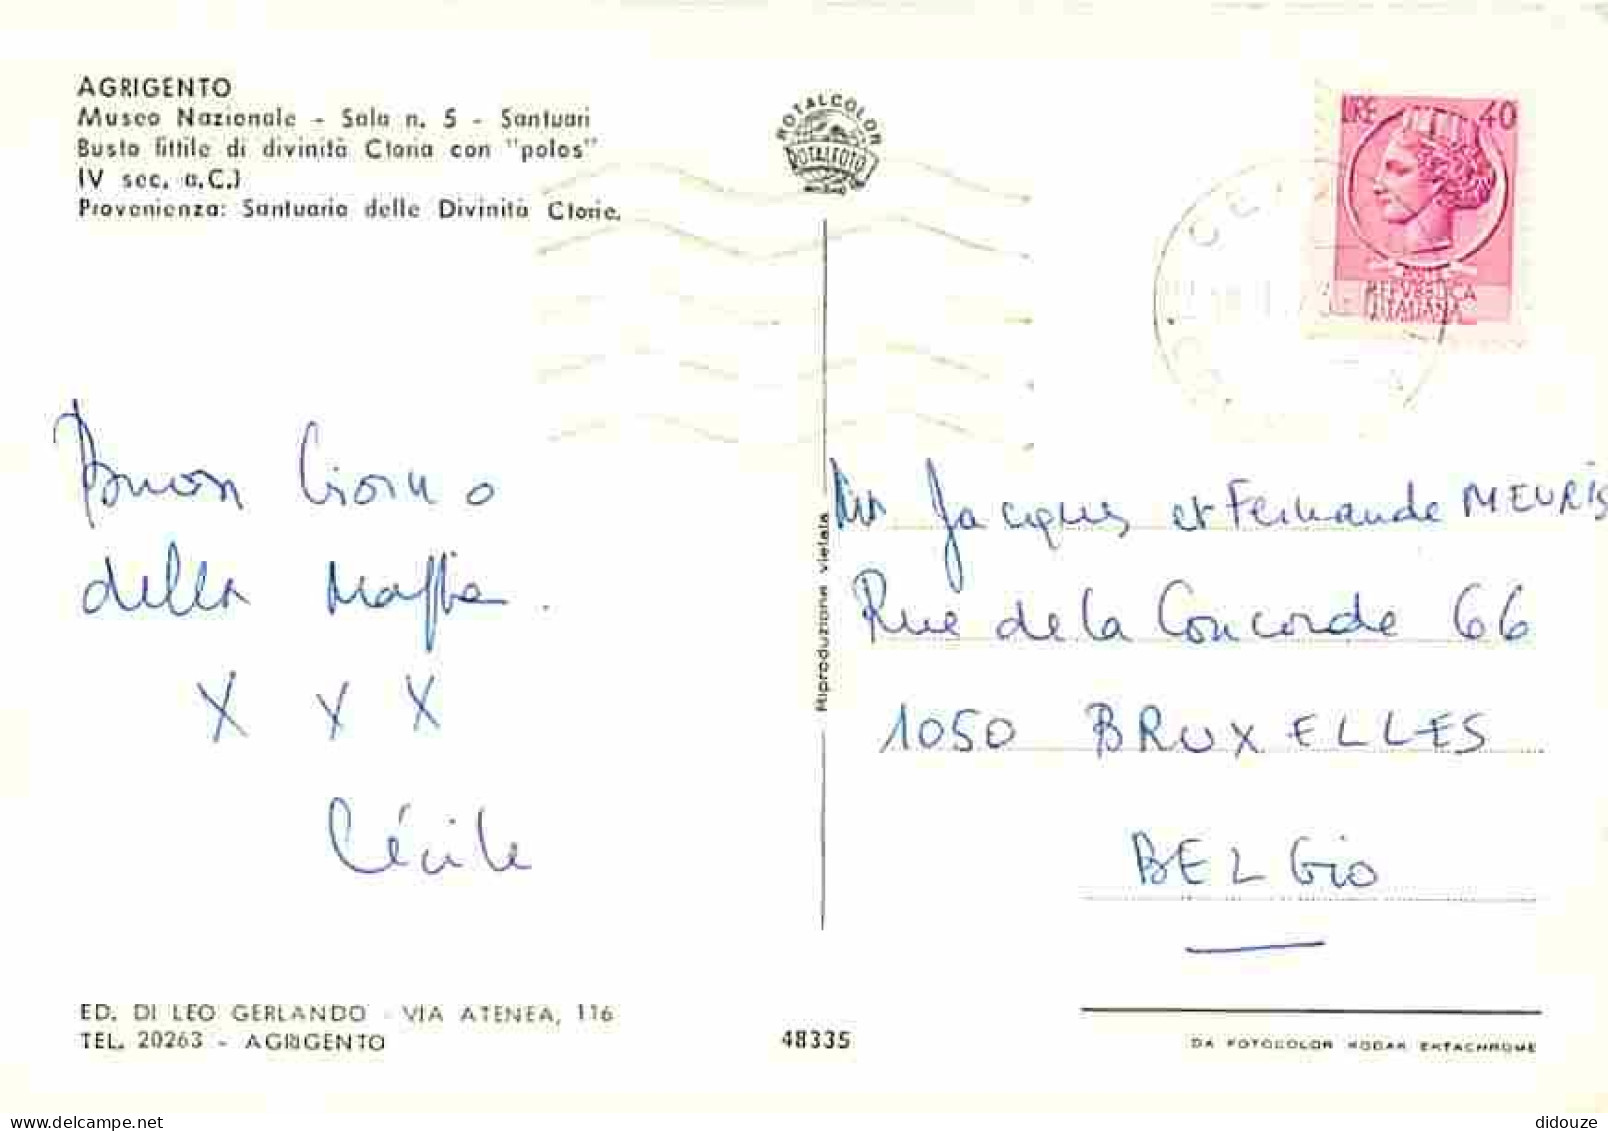 AGRIGENTO
Museo Nazionale - Sala n. 5 - Santuari
Busto fittile di divinità Ctonia con "polos"
IV sec. a.C.)
Provenienza: Santuario delle Divinità Ctonie.
ROTALCOLOR
ROTALFOTO
LIRE 40
REPVBBLICA
ITALIANA
Buon Giorno
della Maffia.
X X X
Cécile
Riproduzione vietata
Jacques et Fernande MEURIS
Rue de la Concorde 66
1050 BRUXELLES
BELGIO
ED. DI LEO GERLANDO - VIA ATENEA, 116
TEL. 20263 - AGRIGENTO
48335
DA FOTOCOLOR KODAK EKTACHROME
didouze